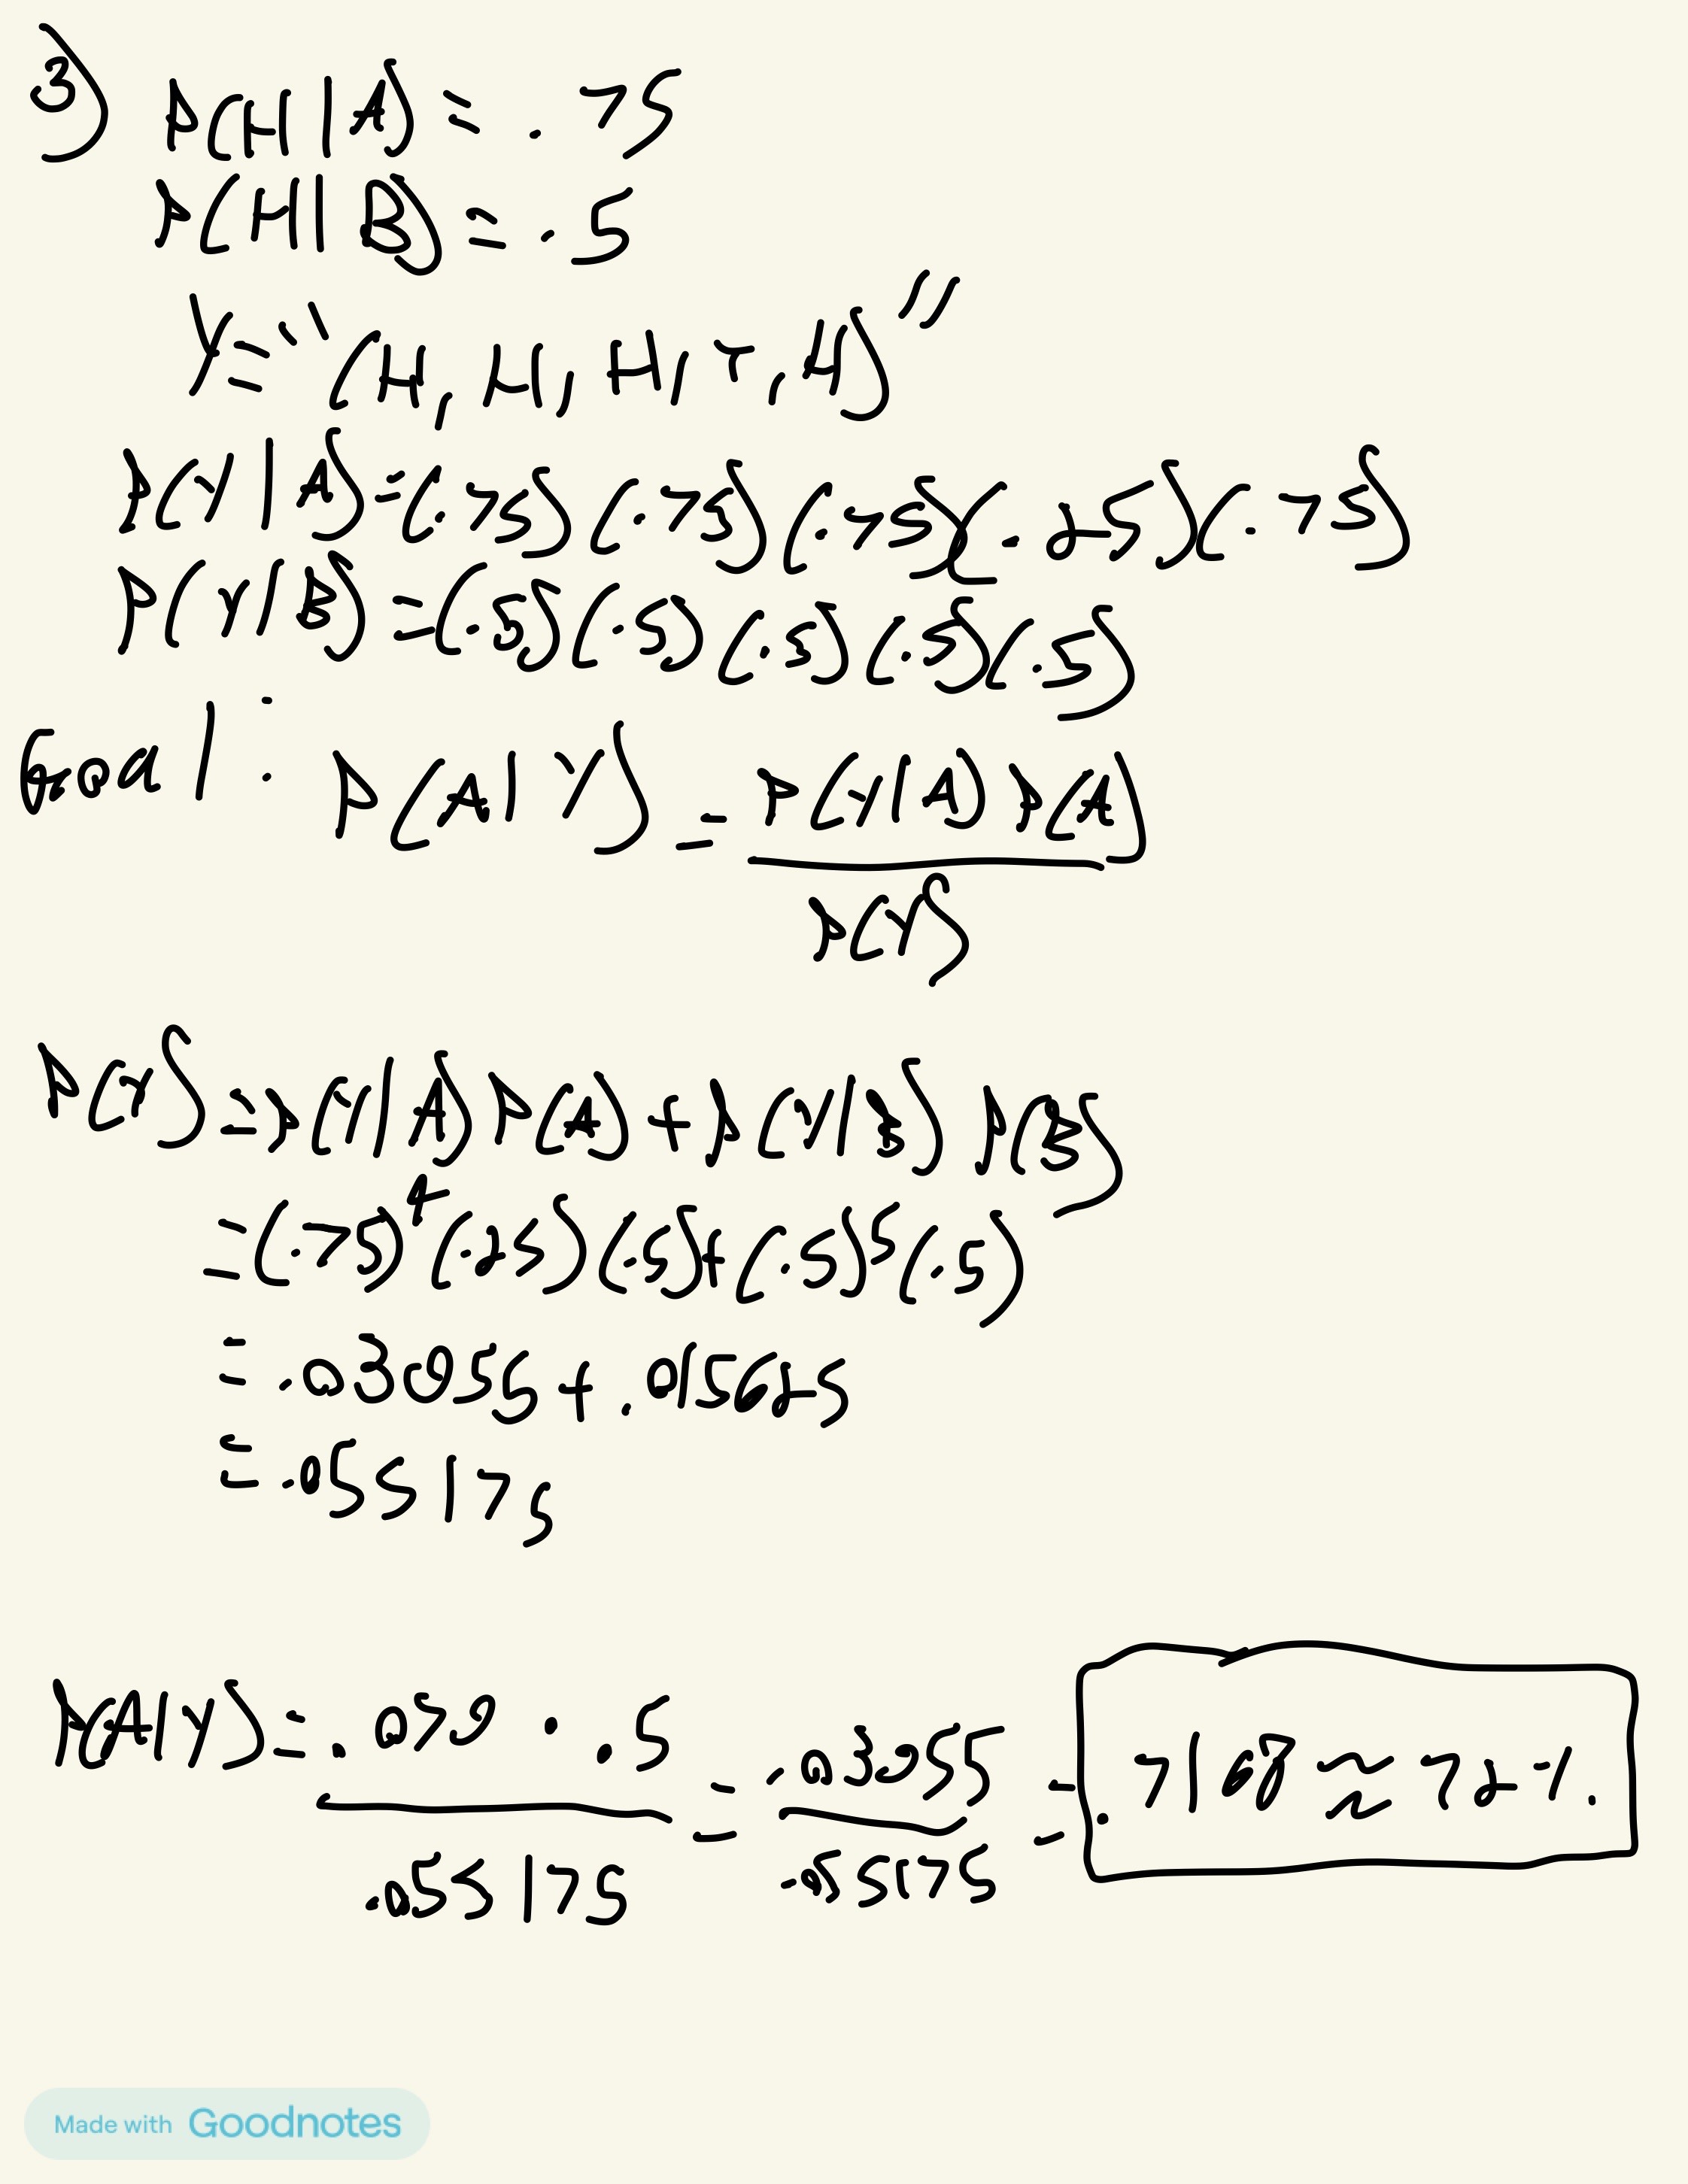 3) P(H|A) = .75
P(H|B) = .5
Y = "(H, H, H, T, H)"
P(Y|A) = (.75)(.75)(.75)(.25)(.75)
P(Y|B) = (.5)(.5)(.5)(.5)(.5)
Goal: P(A|Y) = P(Y|A) P(A)
P(Y)
P(Y) = P(Y|A) P(A) + P(Y|B) P(B)
= (.75)^4 (.25)(.5) + (.5)^5 (.5)
= .03955 + .015625
= .055175
P(A|Y) = .079 · .5 = .03955 = .7168 ≈ 72%.
.055175 .055175
Made with Goodnotes